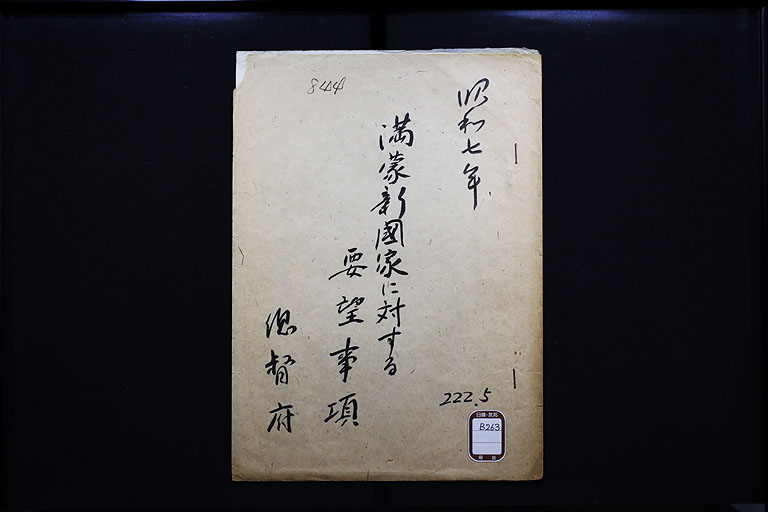 昭和七年
満蒙新國家に対する
要望事項
総督府
8444
222.5
B263